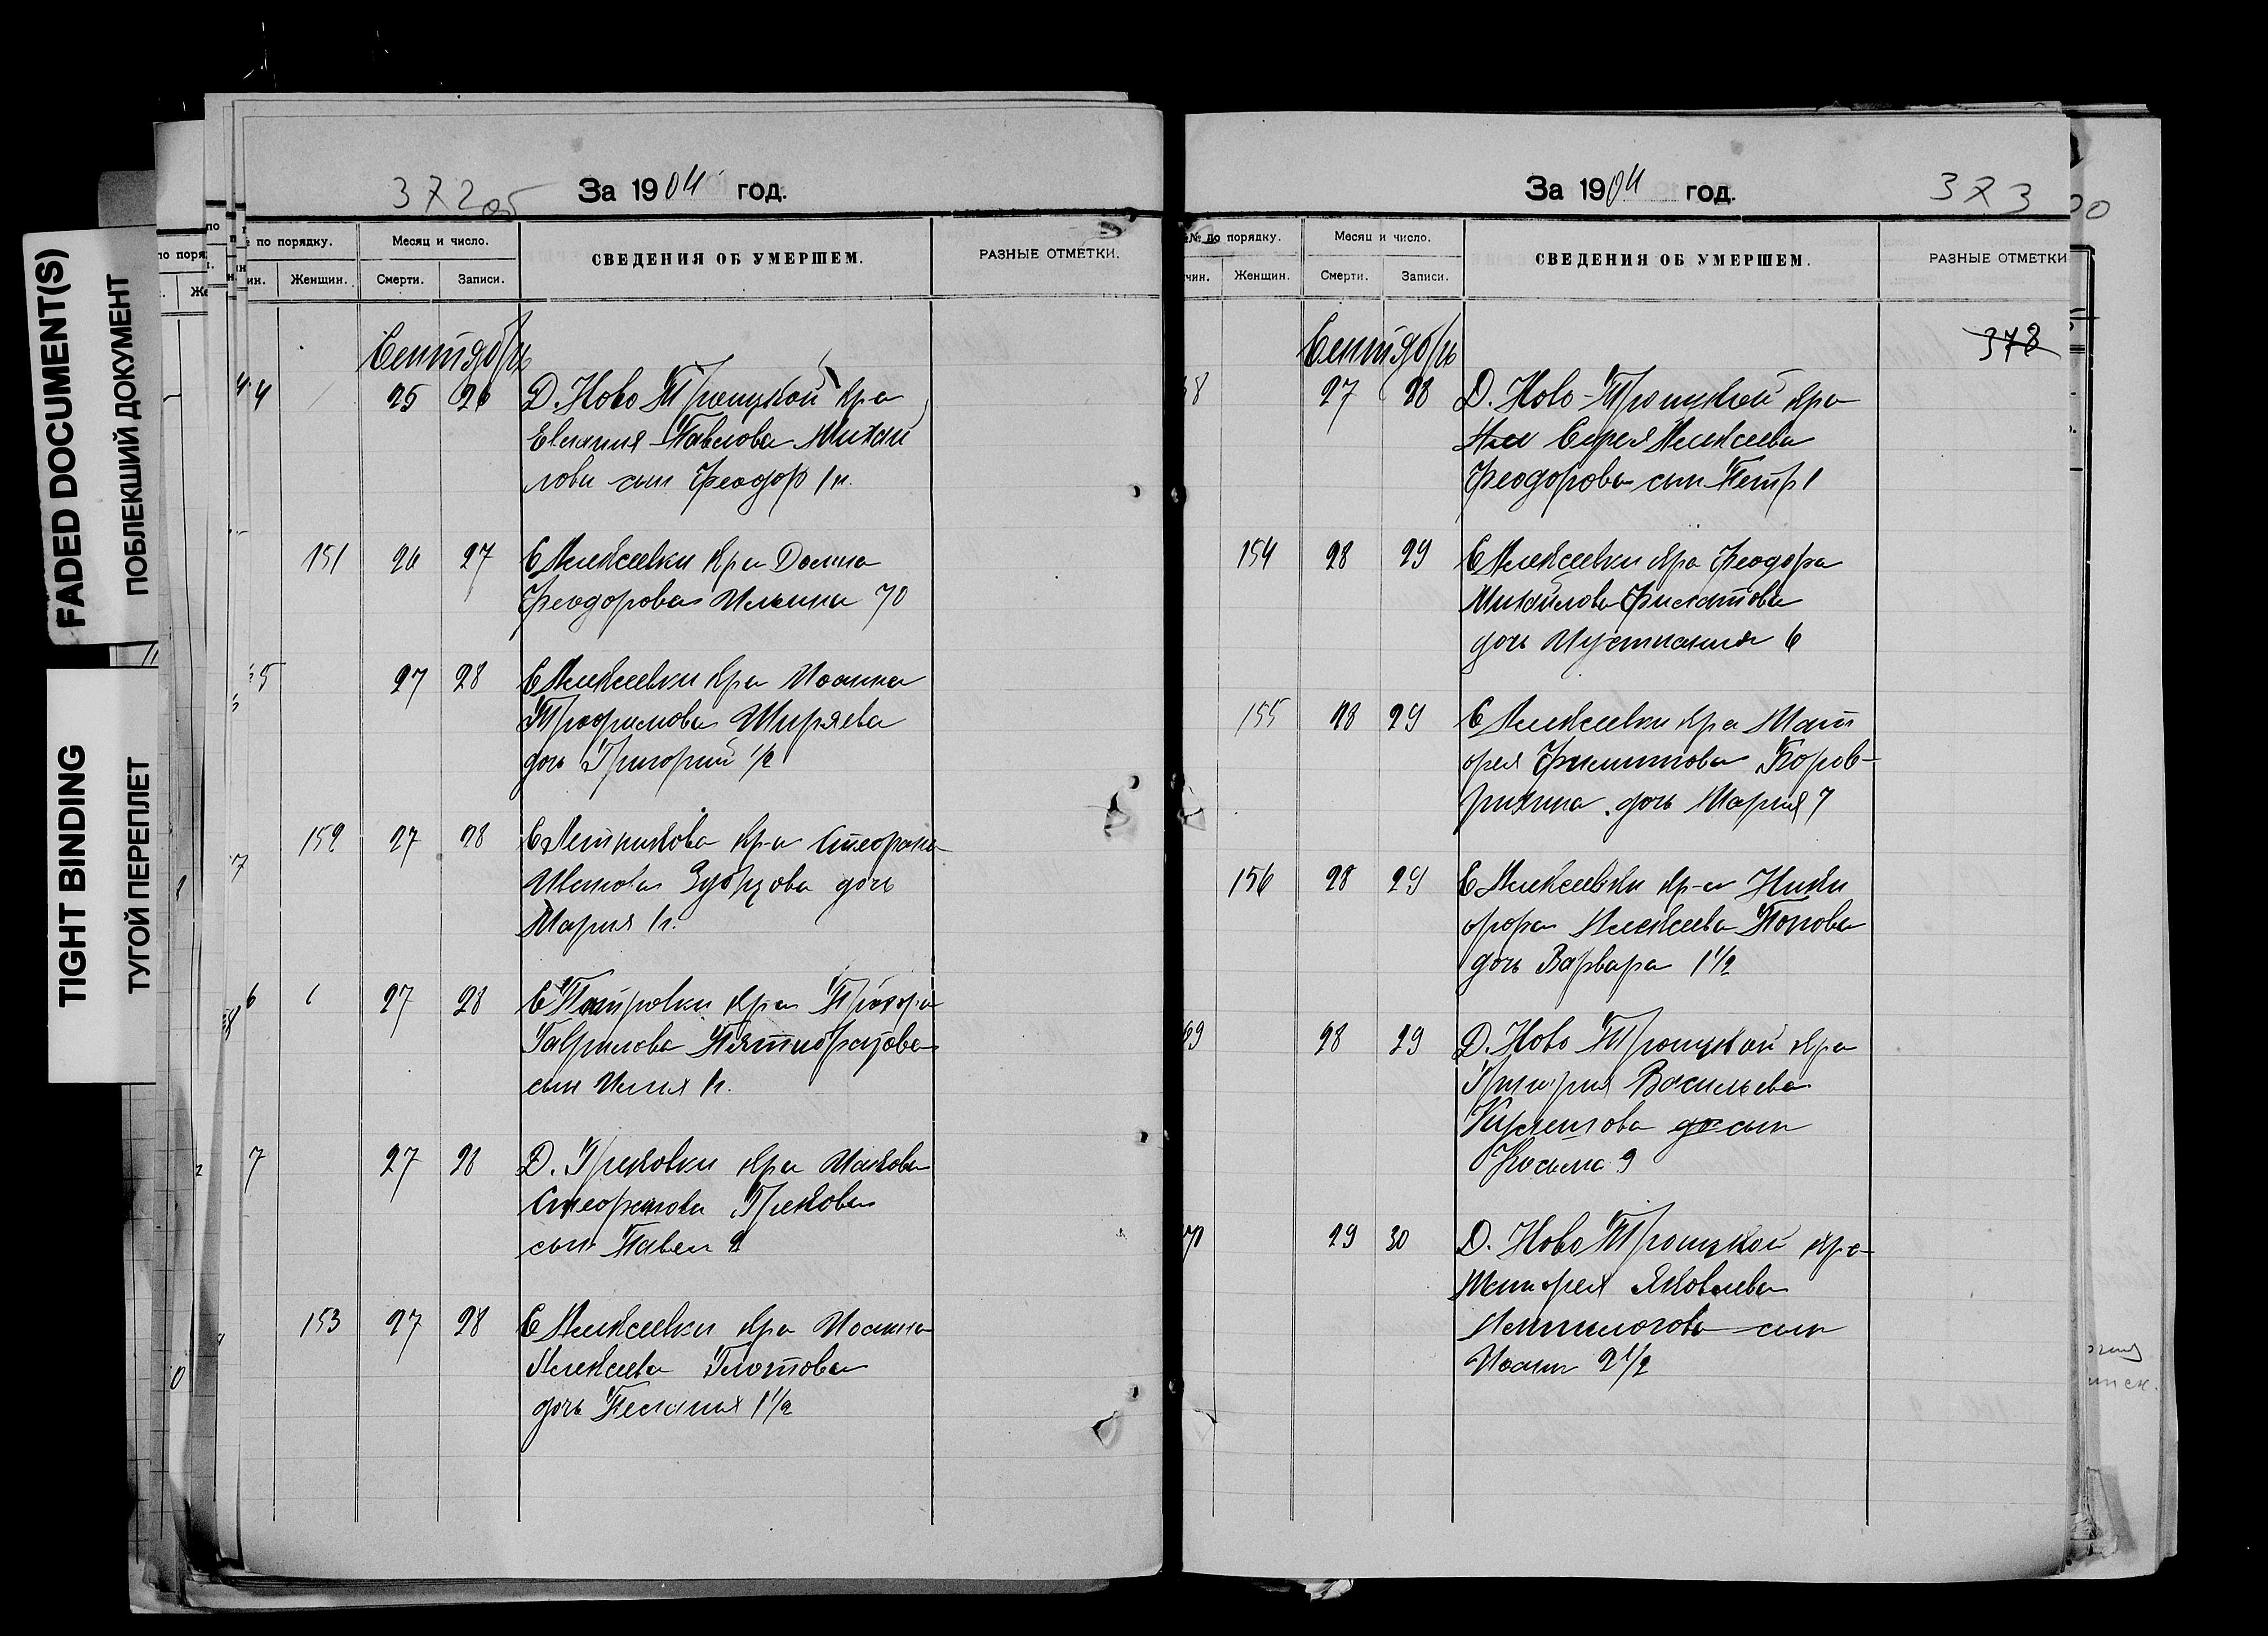 FADED DOCUMENT(S)
ПОБЛЕКШИЙ ДОКУМЕНТ
TIGHT BINDING
ТУГОЙ ПЕРЕПЛЕТ
372об
За 1904 год.
по порядку.
Месяц и число.
СВЕДЕНИЯ ОБ УМЕРШЕМ.
РАЗНЫЕ ОТМЕТКИ.
Женщин.
Смерти.
Записи.
Сентябрь
4 25 26 Д. Ново Троицкой кр-а
Евлампия Павлова Михай
лова сын Феодор 1 н.
151 26 27 С Алексеевки кр-а Домна
Феодорова Ильина 70
5 27 28 С Алексеевки кр-а Иоанна
Трофимова Ширяева
дочь Григорий 1/2
152 27 28 С Летникова кр-а Стефана
Иванова Здорцова дочь
Мария 1 н.
6 27 28 С Патровки кр-а Прохора
Гаврилова
сын Илия 1 н.
7 27 28 Д. Грековки кр-а Иакова
Стефанова Грекова
сын Павел 2
153 27 28 С Алексеевки кр-а Иоанна
Алексеева Глотова
дочь Пелагия 1 1/2
За 1904 год.
373
№№ по порядку.
Месяц и число.
СВЕДЕНИЯ ОБ УМЕРШЕМ.
РАЗНЫЕ ОТМЕТКИ
чин.
Женщин.
Смерти.
Записи.
378
Сентябрь
8 27 28 Д. Ново-Троицкой кр-а
Сергея Алексеева
Феодорова сын Петр 1
154 28 29 С Алексеевки кр-а Феодора
Михайлова Филатова
дочь Иустиания 6
155 28 29 С Алексеевки кр-а Мат
фея Филиппова Коров-
дочь Мария 7
156 28 29 С Алексеевки кр-а Ники
фора Алексеева Попова
дочь Варвара 1 1/2
29 28 29 Д. Ново Троицкой кр-а
Григория Васильева
до сын
Косьма 9
70 29 30 Д. Ново Троицкой кр-а
Матфея Яковлева
сын
Иоанн 2 1/2